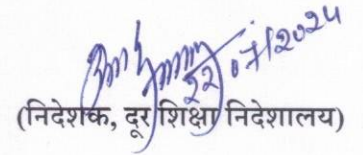 22/07/2024
(निदेशक, दूर शिक्षा निदेशालय)